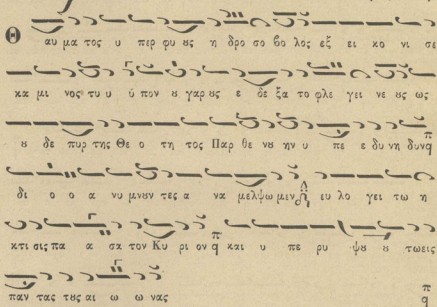 Θ αυ μα τος υ περ φυ ȣς η δρο σο βο λος εξ ει κο νι σε
κα μι νος τυ υ ύ πον ȣ γαρ ȣς ε δε ξα το φλε γει νε ȣς ως
ȣ δε πυρ της Θε ο τη τος Παρ θε νȣ ην υ πε ε δυ νη δυν
δι ο ο α νυ μνȣν τες α να μελψω μεν ευ λο γει τω η
κτι σις πα α σα τον Κυ ρι ον και υ πε ρυ ψȣ ȣ τω εις
παν τας τȣς αι ω ω νας